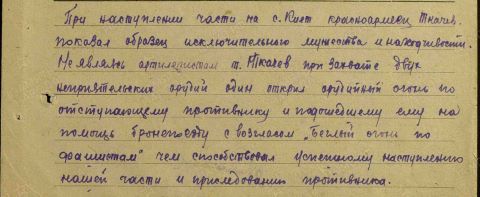 При наступлении части на с. Кият красноармеец Ткачев
показал образец исключительного мужества и находчивости.
Не являясь артилеристом т. Ткачев при захвате двух
неприятельских орудий один открыл орудийный огонь по
отступающему противнику и подошедшему ему на
помощь бронепоезду с возгласом „Беглый огонь по
фашистам" чем способствовал успешному наступлению
нашей части и приследованию противника.